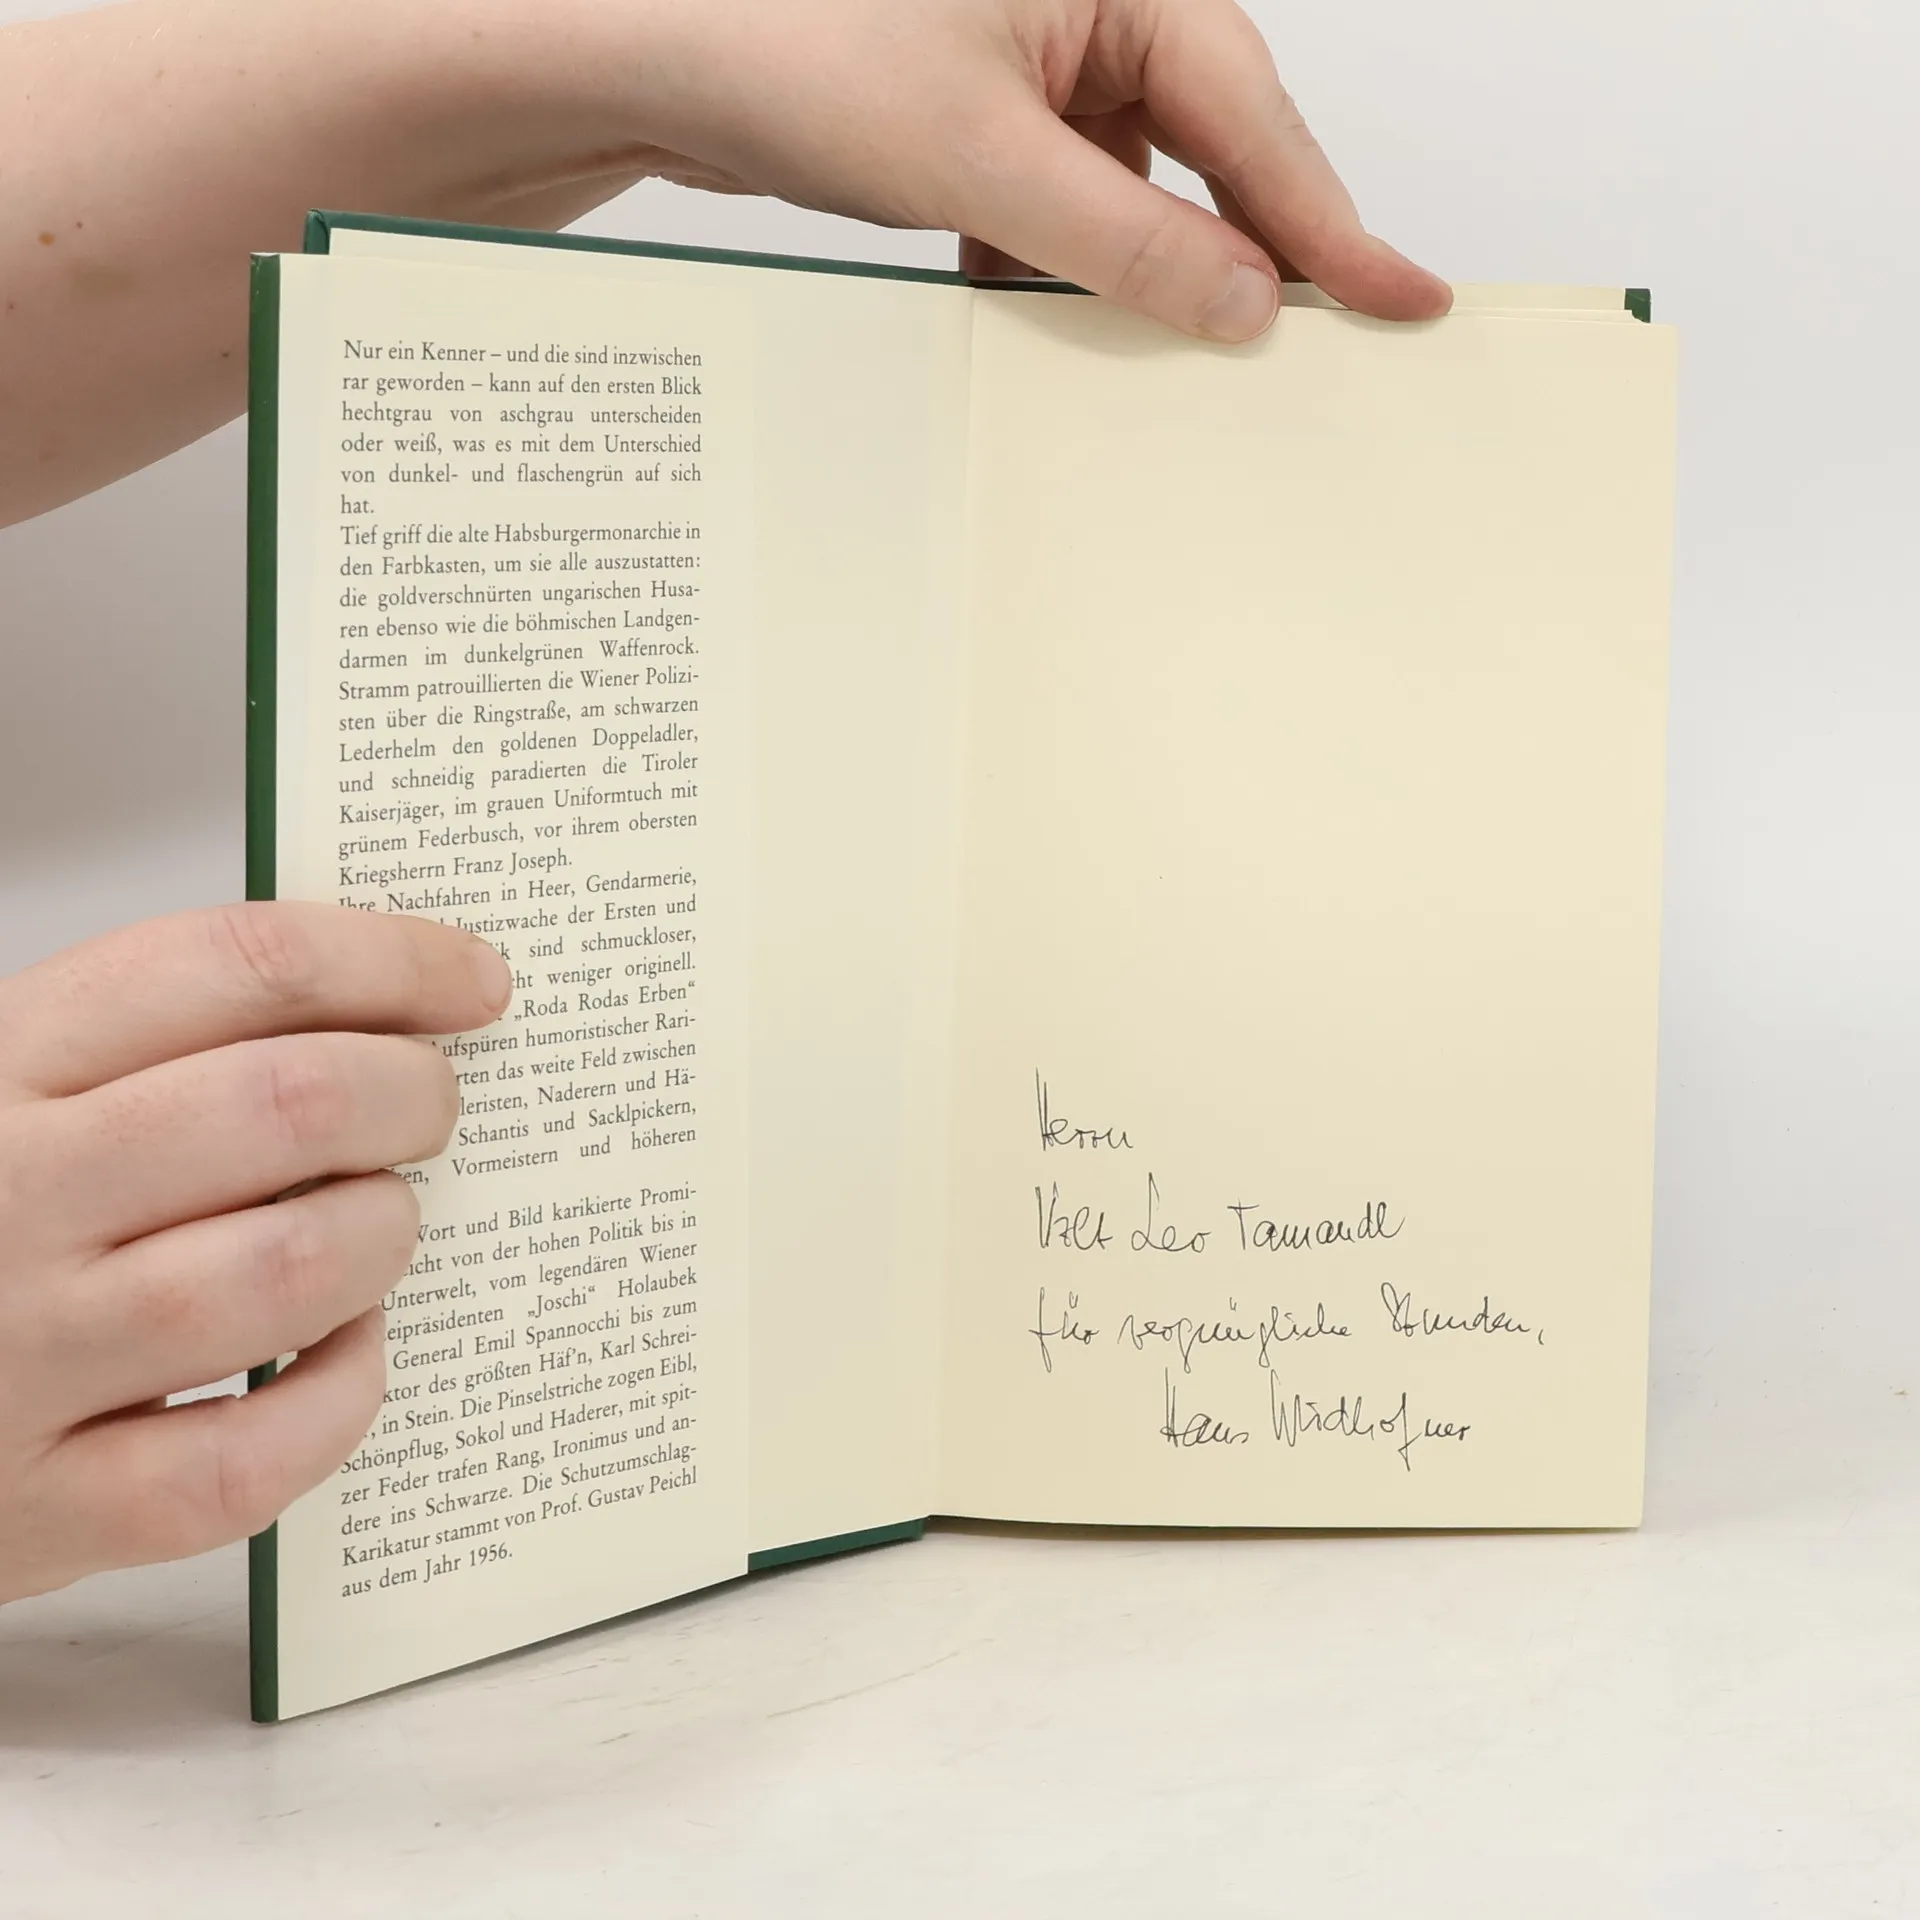 Nur ein Kenner – und die sind inzwischen
rar geworden – kann auf den ersten Blick
hechtgrau von aschgrau unterscheiden
oder weiß, was es mit dem Unterschied
von dunkel- und flaschengrün auf sich
hat.
Tief griff die alte Habsburgermonarchie in
den Farbkasten, um sie alle auszustatten:
die goldverschnürten ungarischen Husa-
ren ebenso wie die böhmischen Landgen-
darmen im dunkelgrünen Waffenrock.
Stramm patrouillierten die Wiener Polizi-
sten über die Ringstraße, am schwarzen
Lederhelm den goldenen Doppeladler,
und schneidig paradierten die Tiroler
Kaiserjäger, im grauen Uniformtuch mit
grünem Federbusch, vor ihrem obersten
Kriegsherrn Franz Joseph.
Ihre Nachfahren in Heer, Gendarmerie,
Justizwache der Ersten und
sind schmuckloser,
weniger originell.
„Roda Rodas Erben“
humoristischer Rari-
das weite Feld zwischen
Naderern und Hä-
Schantis und Sacklpickern,
Vormeistern und höheren
Wort und Bild karikierte Promi-
von der hohen Politik bis in
Unterwelt, vom legendären Wiener
„Joschi“ Holaubek
General Emil Spannocchi bis zum
des größten Häf’n, Karl Schrei-
in Stein. Die Pinselstriche zogen Eibl,
Schönpflug, Sokol und Haderer, mit spit-
zer Feder trafen Rang, Ironimus und an-
dere ins Schwarze. Die Schutzumschlag-
Karikatur stammt von Prof. Gustav Peichl
aus dem Jahr 1956.
Herrn
Leo Tamandl
für vergnügliche Stunden,
Hans Widhofner